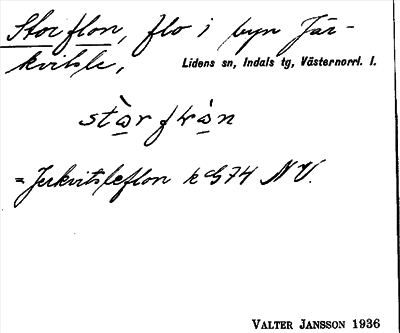 Storflon, flo i byn Jär-
kvitsle,
Lidens sn, Indals tg, Västernorrl. l.
= Jerkvitsleflon k G74 NV.
VALTER JANSSON 1936